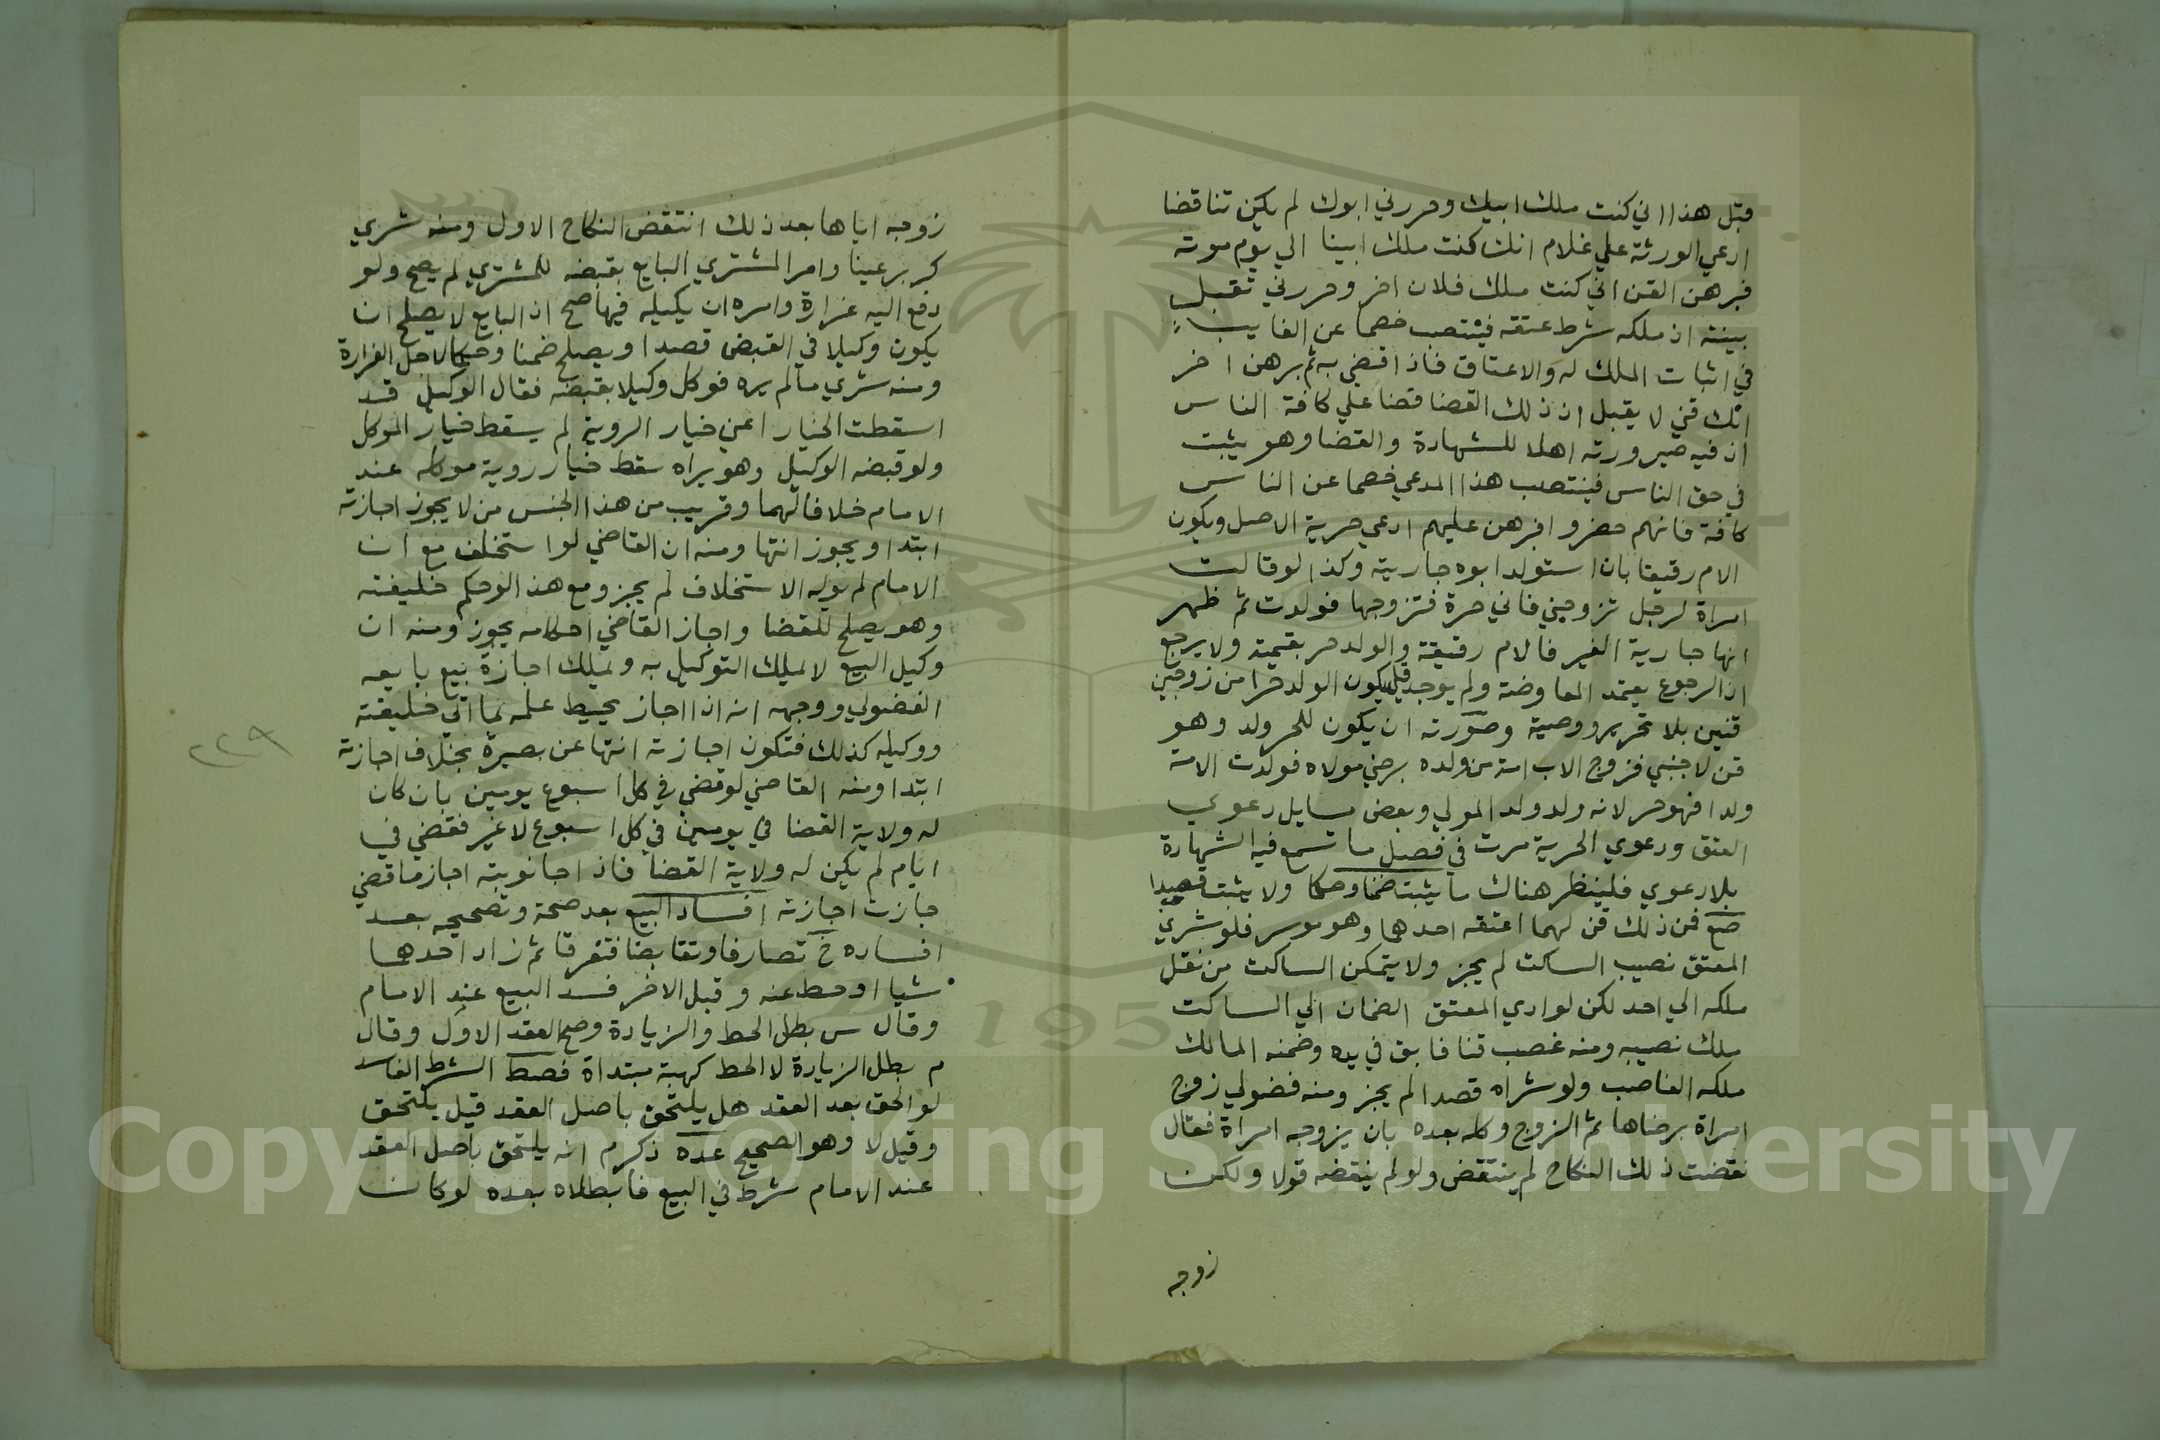 قبل هذا اني كنت ملك ابيك وحررني ابوك لم يكن تناقضا
ادعي الورثة علي غلام انك كنت ملك ابينا الي يوم موته
فبرهن القن اني كنت ملك فلان اخر وحررني تقبل
بينته اذ ملكه شرط عتقه فينتصب خصما عن الغايب
في اثبات الملك له والاعتاق فاذا قضي به ثم برهن اخر
انك قني لا يقبل اذ ذلك القضا قضا علي كافة الناس
اذ فيه صيرورته اهلا للشهادة والقضا وهو يثبت
في حق الناس فينتصب هذا المدعي خصما عن الناس
كافة فانهم حضروا فبرهن عليهم ادعي حرية الاصل ويكون
الام رقيقا بان استولد ابوه جارية وكذا لو قالت
امراة لرجل تزوجني فاني حرة فتزوجها فولدت ثم ظهر
انها جارية الغير فالام رقيقة والولد حر بقيمة ولا يرجع
اذ الرجوع يعتمد المعاوضة ولم يوجد قيل يكون الولد حرا من زوجين
قنين بلا تحرير ووصية وصورته ان يكون للحر ولد وهو
قن لاجنبي فزوج الاب امته من ولده برضي مولاه فولدت الامة
ولدا فهو حر لانه ولد ولد المولي وبعض مسايل دعوي
العتق ودعوي الحرية مرت في فصل ما تسمع فيه الشهادة
بلا دعوي فلينظر هناك ما يثبت ضمنا وحكما ولا يثبت قصدا
صع فمن ذلك قن لهما اعتقه احدهما وهو موسر فلو شري
المعتق نصيب الساكت لم يجز ولا يتمكن الساكت من نقل
ملكه الي احد لكن لو ادي المعتق الضمان الي الساكت
ملك نصيبه ومنه غصب قنا فابق في يده وضمنه المالك
ملكه الغاصب ولو شراه قصدا لم يجز ومنه فضولي زوج
امراة برضاها ثم الزوج وكله بعده بان يزوجه امراة فقال
نقضت ذلك النكاح لم ينتقض ولو لم ينقضه قولا ولكن
زوجه
زوجه اياها بعد ذلك انتقض النكاح الاول ومنه شري
كر بر عينا وامر المشتري البايع بقبضه للمشتري لم يصح ولو
دفع اليه غرارة وامره ان يكيله فيها صح اذ البايع لا يصلح ان
يكون وكيلا في القبض قصدا ويصلح ضمنا وحكما لاجل الغرارة
ومنه شري ما لم يره فوكل وكيلا بقبضه فقال الوكيل قد
اسقطت الخيار اعني خيار الروية لم يسقط خيار الموكل
ولو قبضه الوكيل وهو يراه سقط خيار روية موكله عند
الامام خلافا لهما وقريب من هذا الجنس من لا يجوز اجازته
ابتدا ويجوز انتها ومنه ان القاضي لو استخلف مع ان
الامام لم يوله الاستخلاف لم يجز ومع هذا لو حكم خليفته
وهو يصلح للقضا واجاز القاضي احكامه يجوز ومنه ان
وكيل البيع لا يملك التوكيل به ويملك اجازة بيع بايعه
الفضولي ووجهه انه اذا اجاز يحيط علمه بما اتي خليفته
ووكيله كذلك فتكون اجازته انتها عن بصيرة بخلاف اجازته
ابتدا ومنه القاضي لو قضي في كل اسبوع يومين بان كان
له ولاية القضا في يومين في كل اسبوع لا غير فقضي في
ايام لم يكن له ولاية القضا فاذا جا نوبته اجاز ما قضي
جازت اجازته افساد البيع بعد صحة وتصحيحه بعد
افساده خ تصارفا وتقابضا فتفرقا ثم زاد احدهما
شيا او حط عنه وقبل الاخر فسد البيع عند الامام
وقال س بطل الحط والزيادة وصح العقد الاول وقال
م بطل الزيادة لا الحط كهبة مبتداة فصط الشرط الفاسد
لو الحق بعد العقد هل يلتحق باصل العقد قيل يلتحق
وقيل لا وهو الصحيح عده ذكر م انه يلتحق باصل العقد
عند الامام شرط في البيع فابطلاه بعده لو كان
٢٢٩
Copyright © King Saud University
195